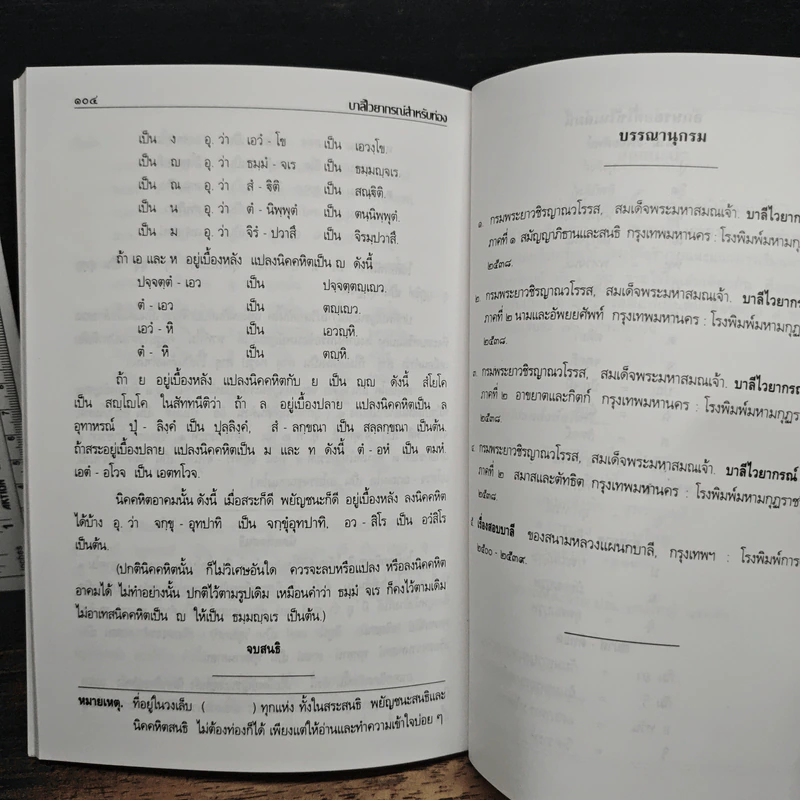 ๑๐๔ บาลีไวยากรณ์สำหรับท่อง
เป็น ง อุ. ว่า เอวํ - โข เป็น เอวงฺโข.
เป็น ญ อุ. ว่า ธมฺมํ - จเร เป็น ธมฺมญฺจเร.
เป็น ณ อุ. ว่า สํ - ฐิติ เป็น สณฺฐิติ.
เป็น น อุ. ว่า ตํ - นิพฺพุตํ เป็น ตนฺนิพฺพุตํ.
เป็น ม อุ. ว่า จิรํ - ปวาสึ เป็น จิรมฺปวาสึ.
ถ้า เอ และ ห อยู่เบื้องหลัง แปลงนิคคหิตเป็น ญ ดังนี้
ปจฺจตฺตํ - เอว เป็น ปจฺจตฺตญฺเญว.
ตํ - เอว เป็น ตญฺเญว.
เอวํ - หิ เป็น เอวญฺหิ.
ตํ - หิ เป็น ตญฺหิ.
ถ้า ย อยู่เบื้องหลัง แปลงนิคคหิตกับ ย เป็น ญฺญ ดังนี้ สํโยโค
เป็น สญฺโญโค ในสัททนีติว่า ถ้า ล อยู่เบื้องปลาย แปลงนิคคหิตเป็น ล
อุทาหรณ์ ปุํ - ลิงฺคํ เป็น ปุลฺลิงฺคํ, สํ - ลกฺขณา เป็น สลฺลกฺขณา เป็นต้น.
ถ้าสระอยู่เบื้องปลาย แปลงนิคคหิตเป็น ม และ ท ดังนี้ ตํ - อหํ เป็น ตมหํ.
เอตํ - อโวจ เป็น เอตทโวจ.
นิคคหิตอาคมนั้น ดังนี้ เมื่อสระก็ดี พยัญชนะก็ดี อยู่เบื้องหลัง ลงนิคคหิต
ได้บ้าง อุ. ว่า จกฺขุ - อุทปาทิ เป็น จกฺขุํอุทปาทิ, อว - สิโร เป็น อวํสิโร
เป็นต้น.
(ปกตินิคคหิตนั้น ก็ไม่วิเศษอันใด ควรจะลบหรือแปลง หรือลงนิคคหิต
อาคมได้ ไม่ทำอย่างนั้น ปกติไว้ตามรูปเดิม เหมือนคำว่า ธมฺมํ จเร ก็คงไว้ตามเดิม
ไม่อาเทสนิคคหิตเป็น ญ ให้เป็น ธมฺมญฺจเร เป็นต้น.)
จบสนธิ
หมายเหตุ. ที่อยู่ในวงเล็บ ( ) ทุกแห่ง ทั้งในสระสนธิ พยัญชนะสนธิและ
นิคคหิตสนธิ ไม่ต้องท่องก็ได้ เพียงแต่ให้อ่านและทำความเข้าใจบ่อย ๆ
บรรณานุกรม
๑ กรมพระยาวชิรญาณวโรรส, สมเด็จพระมหาสมณเจ้า. บาลีไวยา
ภาคที่ ๑ สมัญญาภิธานและสนธิ กรุงเทพมหานคร : โรงพิมพ์มหามกุฏ
๒๕๓๘.
๒ กรมพระยาวชิรญาณวโรรส, สมเด็จพระมหาสมณเจ้า. บาลีไวยาก
ภาคที่ ๒ นามและอัพยยศัพท์ กรุงเทพมหานคร : โรงพิมพ์มหามกุฏ
๒๕๓๘.
๓ กรมพระยาวชิรญาณวโรรส, สมเด็จพระมหาสมณเจ้า. บาลีไวยากรณ์
ภาคที่ ๒ อาขยาตและกิตก์ กรุงเทพมหานคร : โรงพิมพ์มหามกุฏรา
๒๕๓๘.
๔ กรมพระยาวชิรญาณวโรรส, สมเด็จพระมหาสมณเจ้า. บาลีไวยากรณ์
ภาคที่ ๒ สมาสและตัทธิต กรุงเทพมหานคร : โรงพิมพ์มหามกุฏราช
๒๕๓๘.
๕ เรื่องสอบบาลี ของสนามหลวงแผนกบาลี, กรุงเทพฯ : โรงพิมพ์การ
๒๕๐๐ - ๒๕๓๙.